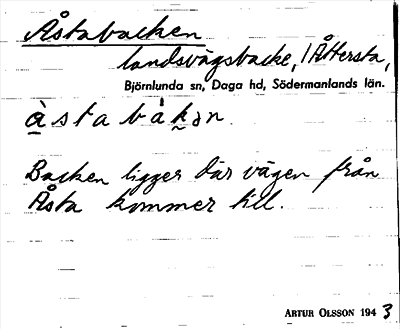 Åstabacken
landsvägsbacke, i Åttersta,
Björnlunda sn, Daga hd, Södermanlands län.
Backen ligger där vägen från
Åsta kommer till.
ARTUR OLSSON 1943